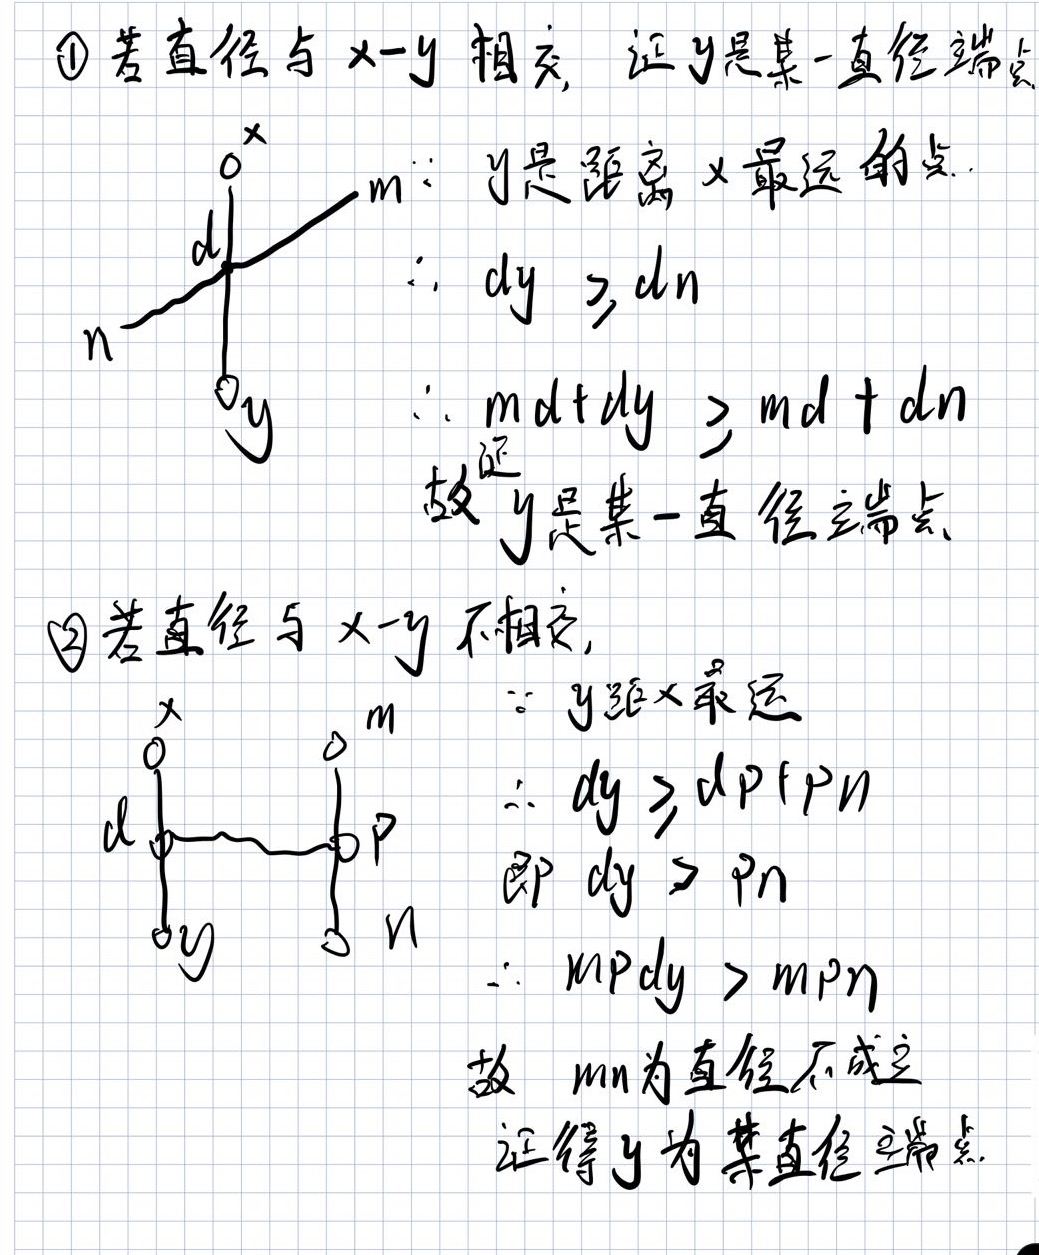 ① 若直径与 x-y 相交, 证y是某一直径端点
x
m
d
n
y
∵ y是距离 x 最远的点.
∴ dy ⩾ dn
∴ md+dy ⩾ md+dn
故证y是某一直径端点
② 若直径与 x-y 不相交,
x
m
d
p
y
n
∵ y距x最远
∴ dy ⩾ dp+pn
即 dy > pn
∴ mpdy > mpn
故 mn为直径不成立
证得y为某直径端点.